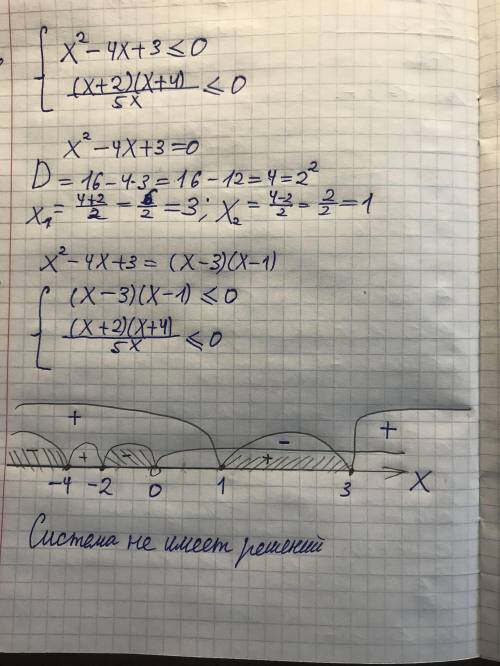 x² − 4x + 3 ≤ 0
(x+2)(x+4)/5x ≤ 0
x² − 4x + 3 = 0
D = 16 − 4·3 = 16 − 12 = 4 = 2²
x₁ = (4+2)/2 = 6/2 = 3; x₂ = (4−2)/2 = 2/2 = 1
x² − 4x + 3 = (x−3)(x−1)
(x−3)(x−1) ≤ 0
(x+2)(x+4)/5x ≤ 0
+ − +
− + − +
−4 −2 0 1 3 X
Система не имеет решений